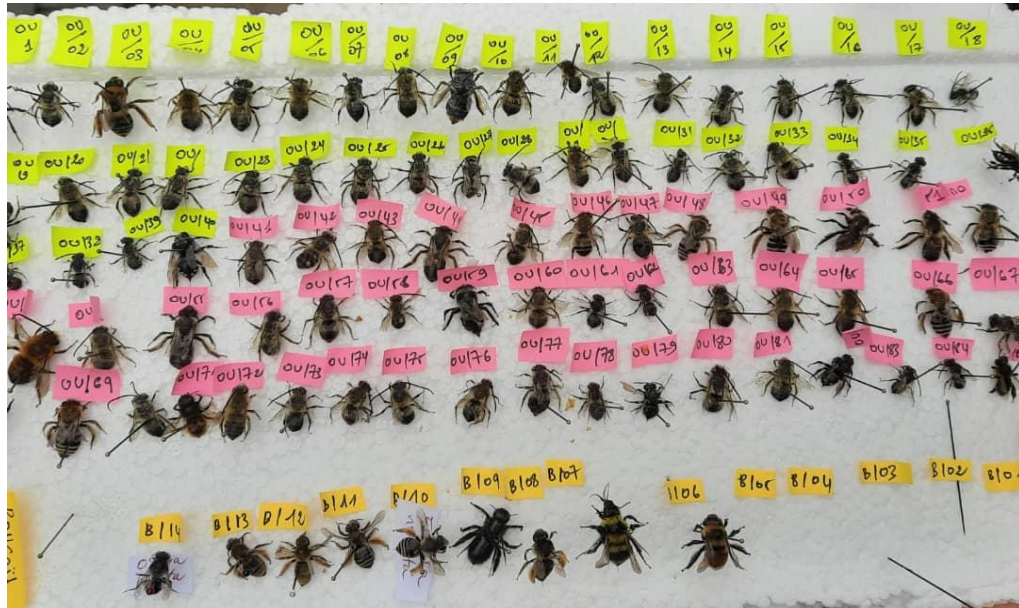 OU 1
OU/02
OU/03
OU/05
OU/06
OU/07
OU/08
OU/09
OU/10
OU/11
OU/12
OU/13
OU/14
OU/15
OU/16
OU/17
OU/18
OU/20
OU/21
OU/
OU/23
OU/24
OU/25
OU/26
OU/27
OU/28
OU/
OU/
OU/31
OU/32
OU/33
OU/34
OU/35
OU/36
37
OU/38
OU/39
OU/40
OU/41
OU/42
OU/43
OU/45
OU/46
OU/47
OU/48
OU/49
OU/50
OU/
OU/56
OU/57
OU/58
OU/59
OU/60
OU/61
OU/63
OU/64
OU/65
OU/66
OU/67
OU/69
OU/72
OU/73
OU/74
OU/75
OU/76
OU/77
OU/78
OU/79
OU/80
OU/81
OU/83
OU/84
B/14
B/13
B/12
B/11
B/10
B/09
B/08
B/07
/06
B/05
B/04
B/03
B/02
B/01